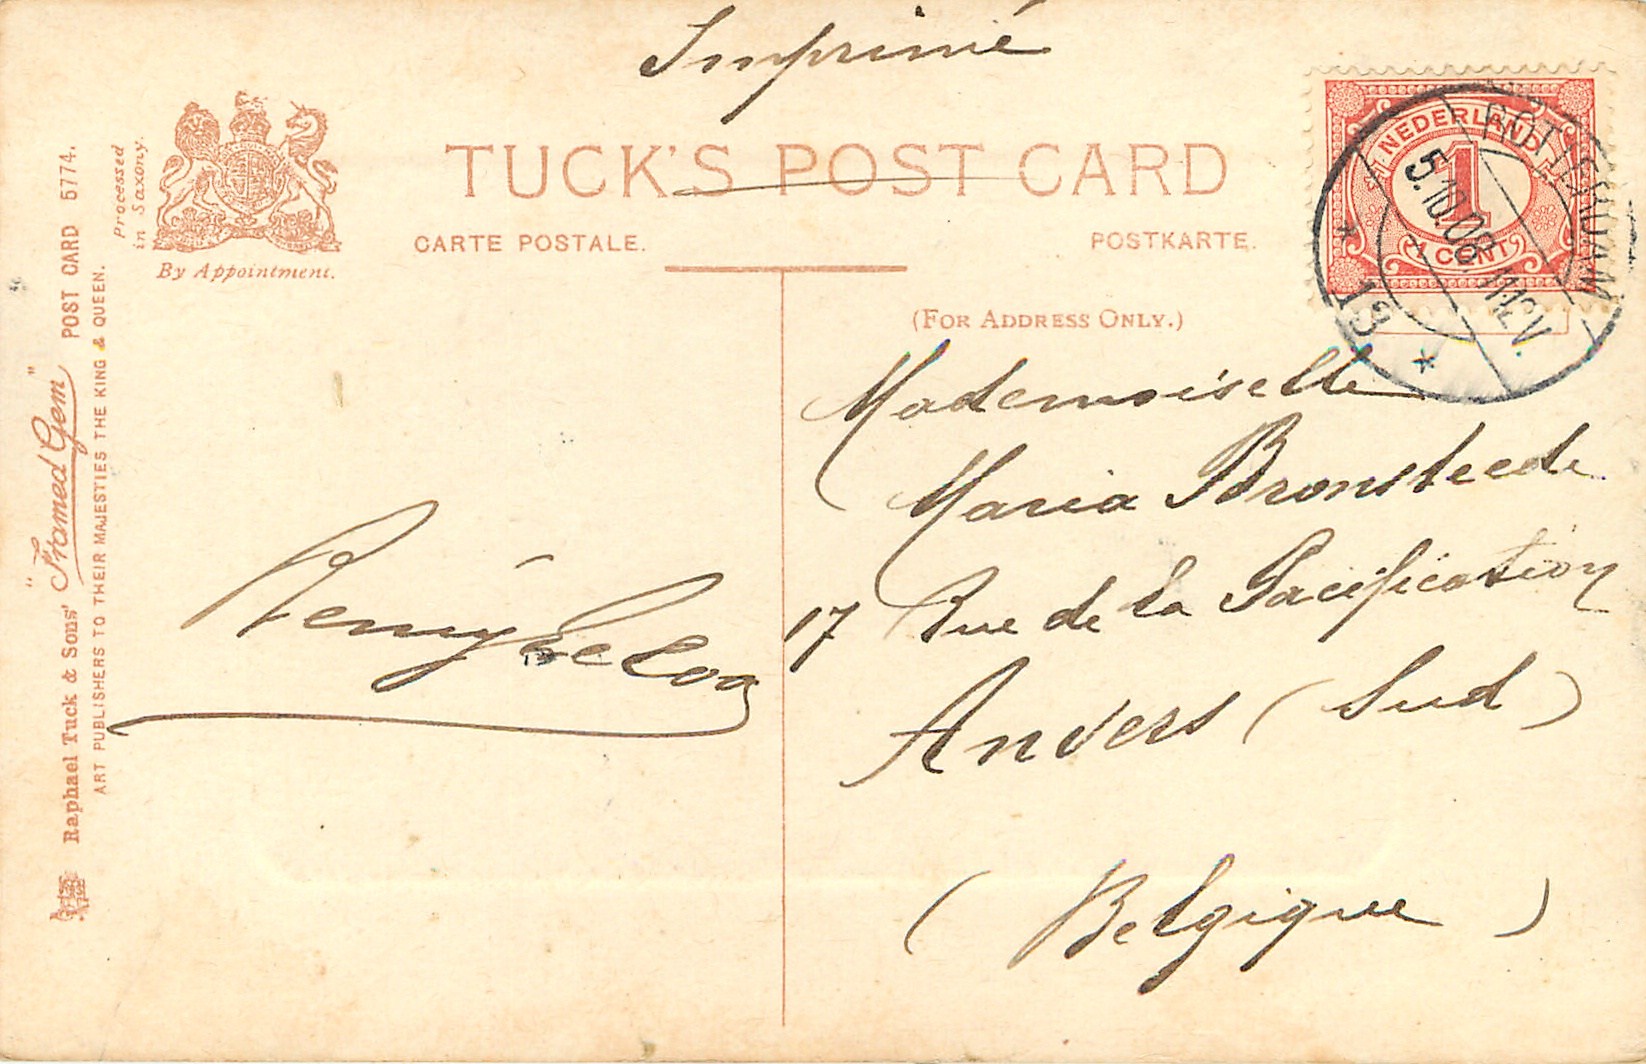 Imprimé
TUCK'S POST CARD
CARTE POSTALE.
POSTKARTE.
(FOR ADDRESS ONLY.)
Processed
in Saxony.
By Appointment.
Raphael Tuck & Sons' "Framed Gem" POST CARD 5774.
ART PUBLISHERS TO THEIR MAJESTIES THE KING & QUEEN.
NEDERLAND
1
CENT
ROTTERDAM
5.10.08. 11-12V.
* 13 *
Mademoiselle
Maria Bronsteede
17 Rue de la Pacification
Anvers (Sud)
(Belgique)
Remy